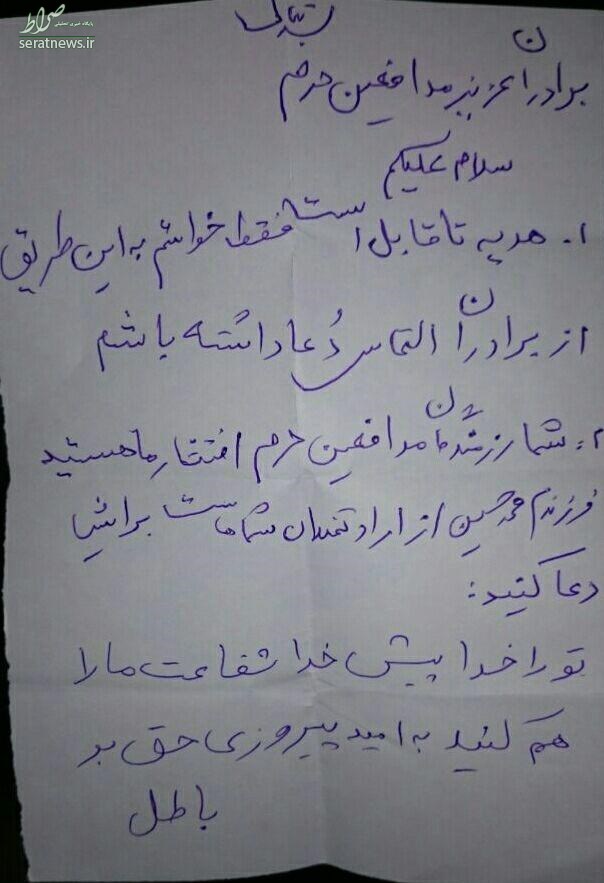 صراط
پایگاه خبری تحلیلی
seratnews.ir
برادران عزیز مدافعین حرم
سلام علیکم
۱. هدیه ناقابل است فقط خواستم به این طریق
از برادران التماس دُعا داشته باشم
۲. شما رزمندگان مدافعین حرم افتخار ما هستید
فرزندم محمدحسین از ارادتمندان شماست برایش
دعا کنید:
تو را خدا پیش خدا شفاعت ما را
هم کنید به امید پیروزی حق بر
باطل